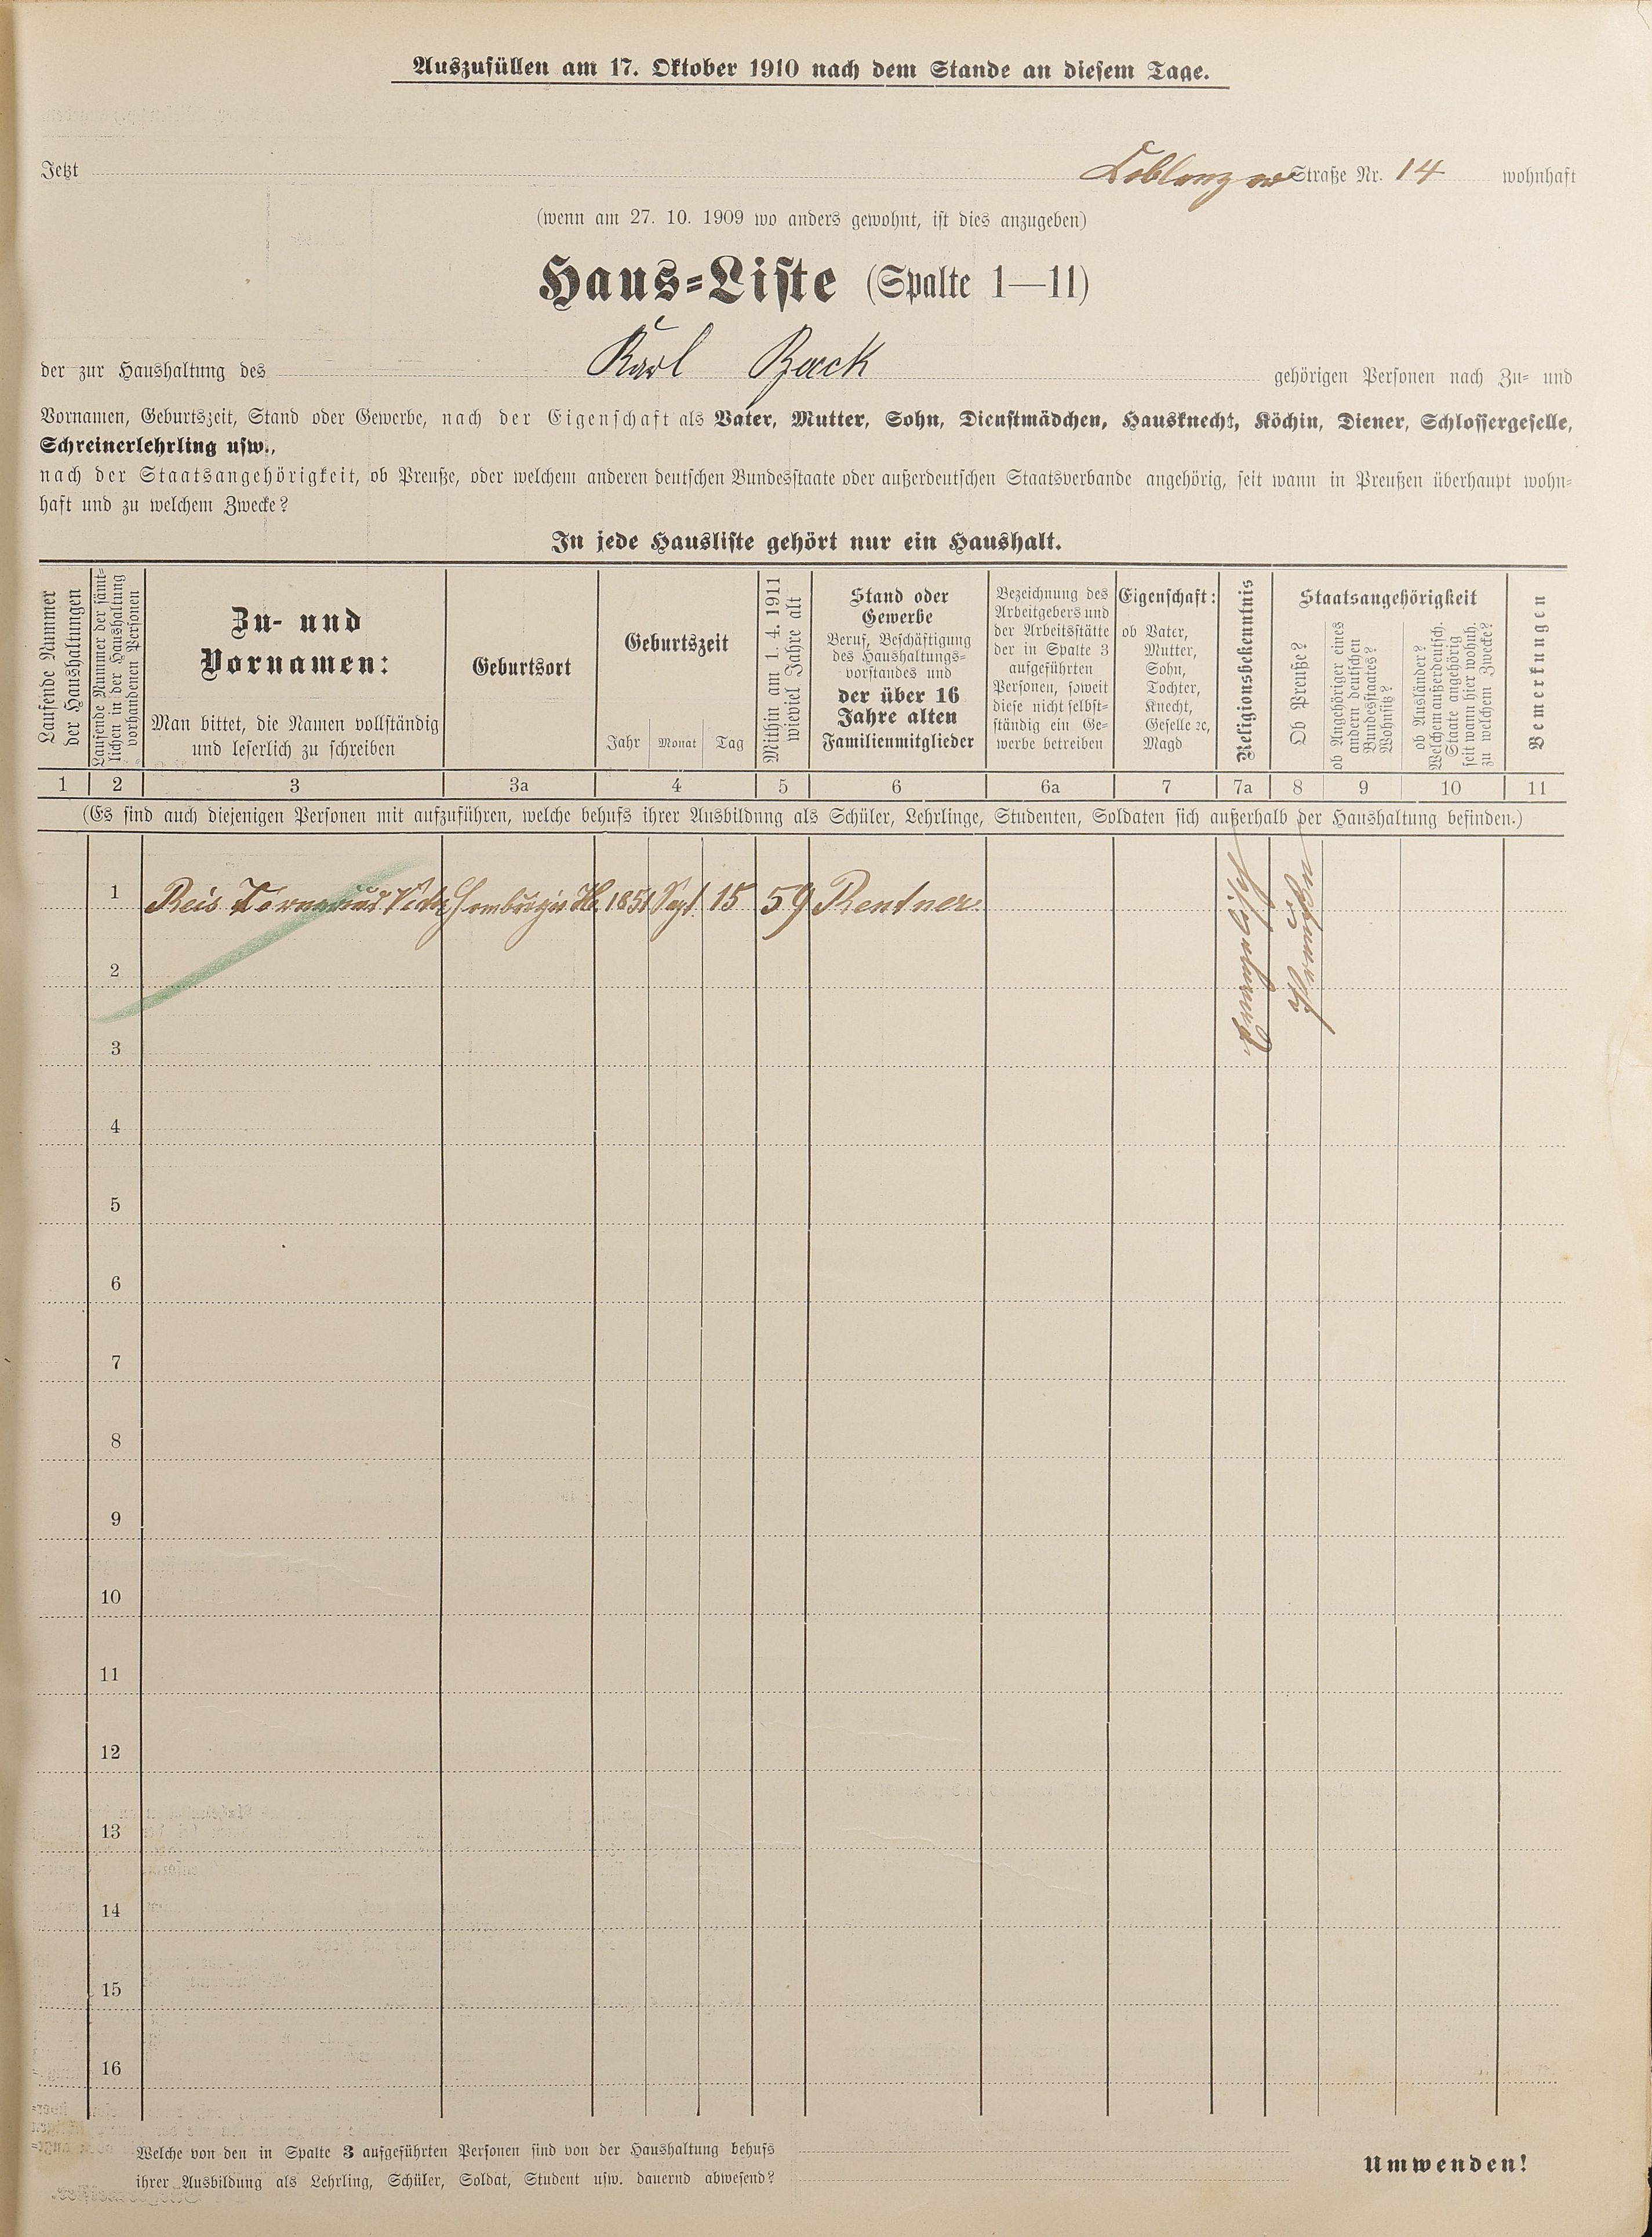 Auszufüllen am 17. Oktober 1910 nach dem Stande an diesem Tage.
Jetzt Coblenzer Straße Nr. 14 wohnhaft
(wenn am 27. 10. 1909 wo anders gewohnt, ist dies anzugeben)
Haus-Liste (Spalte 1—11)
der zur Haushaltung des Karl Back gehörigen Personen nach Zu- und
Vornamen, Geburtszeit, Stand oder Gewerbe, nach der Eigenschaft als Vater, Mutter, Sohn, Dienstmädchen, Hausknecht, Köchin, Diener, Schlossergeselle,
Schreinerlehrling usw.,
nach der Staatsangehörigkeit, ob Preuße, oder welchem anderen deutschen Bundesstaate oder außerdeutschen Staatsverbande angehörig, seit wann in Preußen überhaupt wohn-
haft und zu welchem Zwecke?
In jede Hausliste gehört nur ein Haushalt.
Laufende Nummer
der Haushaltungen
Laufende Nummer der sämt-
lichen in der Haushaltung
vorhandenen Personen
Zu- und
Vornamen:
Man bittet, die Namen vollständig
und leserlich zu schreiben
Geburtsort
Geburtszeit
Jahr Monat Tag
Mithin am 1. 4. 1911
wieviel Jahre alt
Stand oder
Gewerbe
Beruf, Beschäftigung
des Haushaltungs-
vorstandes und
der über 16
Jahre alten
Familienmitglieder
Bezeichnung des
Arbeitgebers und
der Arbeitsstätte
der in Spalte 3
aufgeführten
Personen, soweit
diese nicht selbst-
ständig ein Ge-
werbe betreiben
Eigenschaft:
ob Vater,
Mutter,
Sohn,
Tochter,
Knecht,
Geselle ꝛc,
Magd
Religionsbekenntnis
Staatsangehörigkeit
Ob Preuße?
ob Angehöriger eines
andern deutschen
Bundesstaates?
Wohnsitz?
ob Ausländer?
Welchem außerdeutsch.
Staate angehörig
seit wann hier wohnh.
zu welchem Zwecke?
Bemerkungen
1 2 3 3a 4 5 6 6a 7 7a 8 9 10 11
(Es sind auch diejenigen Personen mit aufzuführen, welche behufs ihrer Ausbildung als Schüler, Lehrlinge, Studenten, Soldaten sich außerhalb der Haushaltung befinden.)
1 Reis Homburg v. H. 1851 Sept 15 59 Rentner
2
3
4
5
6
7
8
9
10
11
12
13
14
15
16
Welche von den in Spalte 3 aufgeführten Personen sind von der Haushaltung behufs
ihrer Ausbildung als Lehrling, Schüler, Soldat, Student usw. dauernd abwesend?
Umwenden!